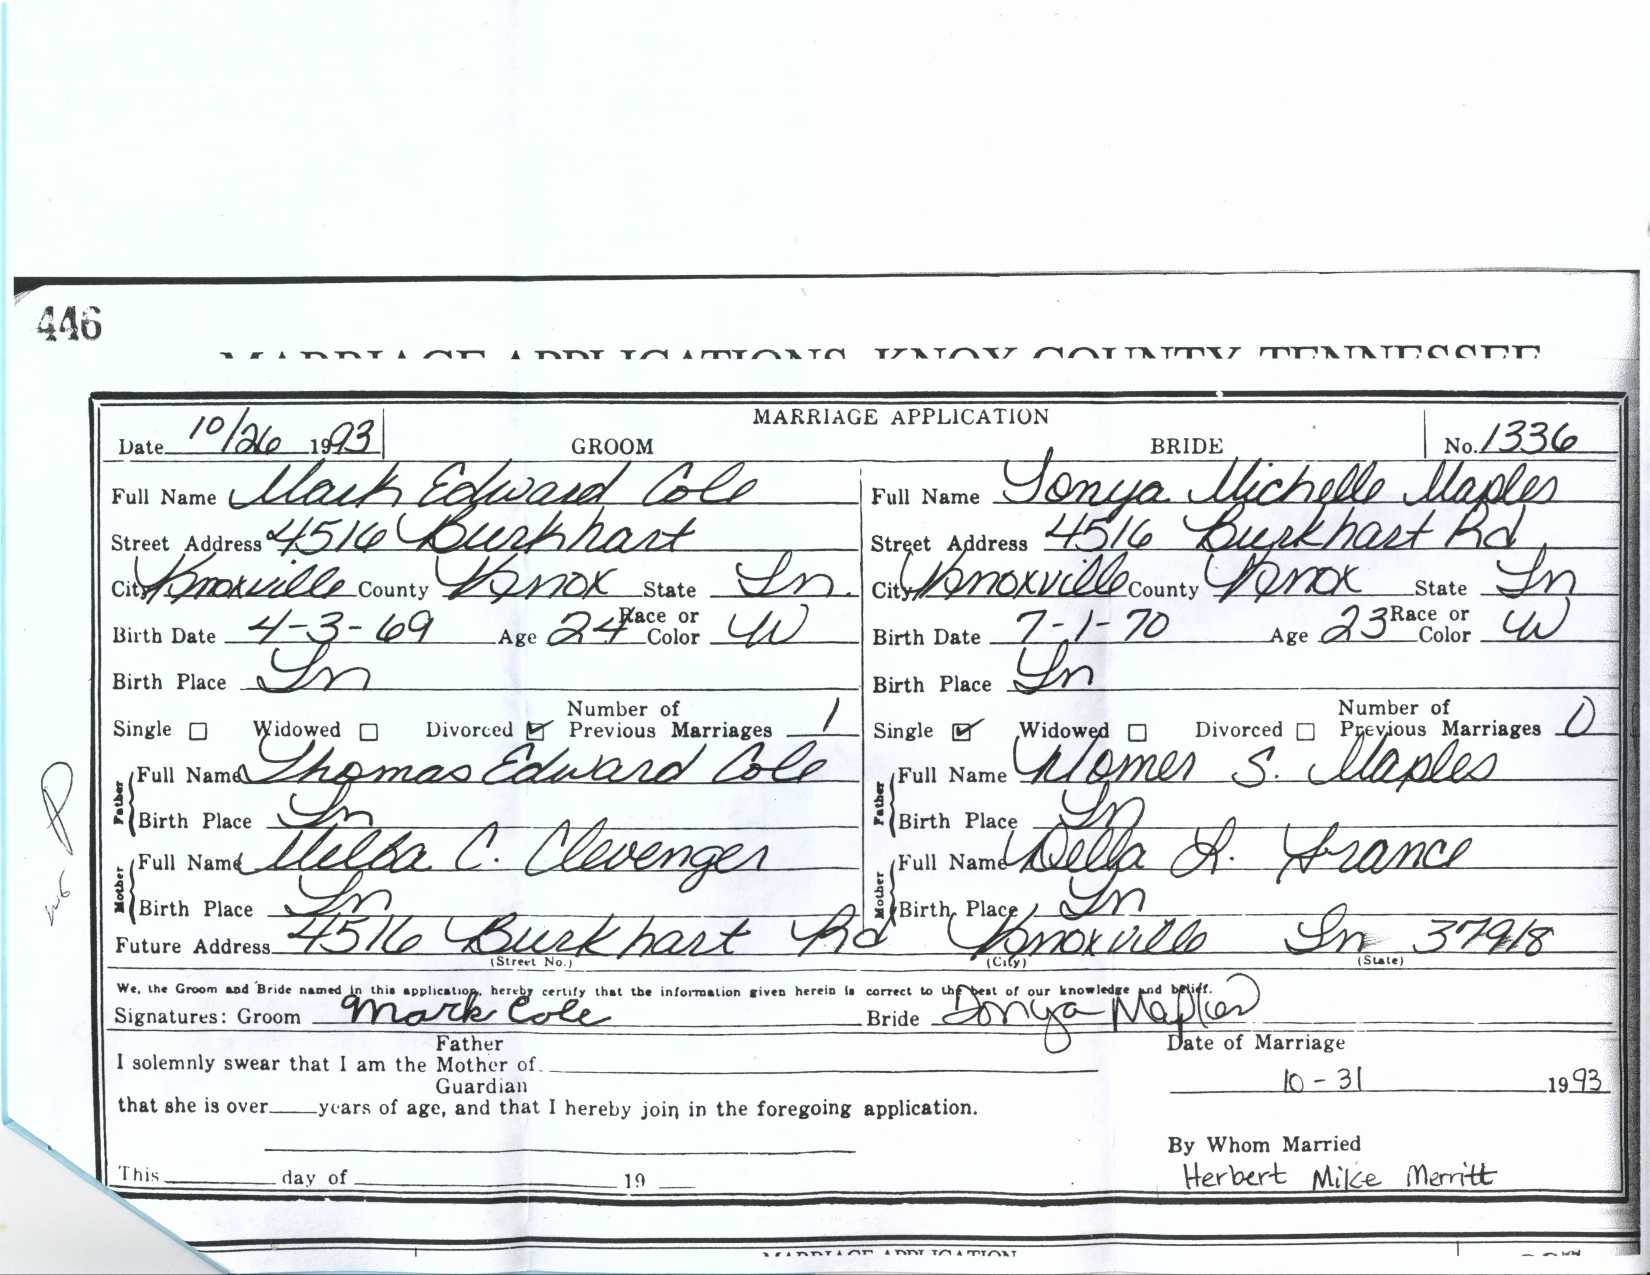 446
MARRIAGE APPLICATIONS, KNOX COUNTY, TENNESSEE
MARRIAGE APPLICATION
Date 10/26 1993 GROOM BRIDE No. 1336
Full Name Mark Edward Cole Full Name Tonya Michelle Maples
Street Address 4516 Burkhart Street Address 4516 Burkhart Rd
City Knoxville County Knox State Tn. City Knoxville County Knox State Tn
Birth Date 4-3-69 Age 24 Race or Color W Birth Date 7-1-70 Age 23 Race or Color W
Birth Place Tn Birth Place Tn
Single ☐ Widowed ☐ Divorced ☑ Number of Previous Marriages 1 Single ☑ Widowed ☐ Divorced ☐ Number of Previous Marriages 0
Father Full Name Thomas Edward Cole Father Full Name Homer S. Maples
Birth Place Tn Birth Place Tn
Mother Full Name Melba C. Clevenger Mother Full Name Della L. France
Birth Place Tn Birth Place Tn
Future Address 4516 Burkhart Rd Knoxville Tn 37918
(Street No.) (City) (State)
We, the Groom and Bride named in this application, hereby certify that the information given herein is correct to the best of our knowledge and belief.
Signatures: Groom Mark Cole Bride Tonya Maples
Father
I solemnly swear that I am the Mother of
Guardian
that she is over years of age, and that I hereby join in the foregoing application.
This day of 19
Date of Marriage
10-31 1993
By Whom Married
Herbert Mike Merritt
MARRIAGE APPLICATION